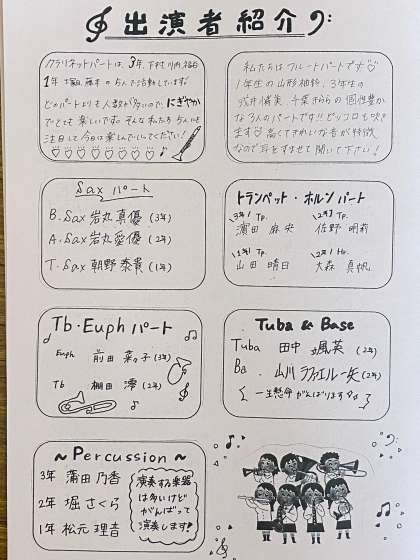 出演者紹介
クラリネットパートは、3年、下村、川内、福谷
1年 堀田、藤本の5人で活動しています!
どのパートよりも人数が多いので、にぎやか
でとても楽しいです。そんな私たち5人に
注目して今日は楽しんでいってください!
私たちはフルートパートです♡
1年生の山形柚鈴、3年生の
浅井 千葉 の個性豊か
な3人のパートです!!ピッコロも吹き
ます 高くてきれいな音が特徴
なので耳をすませて聞いて下さい!
Sax パート
B.Sax 岩丸真優(3年)
A.Sax 岩丸愛優(2年)
T.Sax 朝野泰貴(1年)
トランペット・ホルンパート
3年 Tp. 2年 Tp.
濱田 麻央 佐野 明莉
1年 Tp. 2年 Hr.
山田 晴日 大森 真帆
Tb・Euph パート
Euph 前田 菜々子(3年)
Tb 棚田 澪(2年)
Tuba & Base
Tuba 田中 颯英(2年)
Ba. 山川 ラファエル一矢(2年)
一生懸命がんばります
~Percussion~
3年 蒲田 乃香
2年 堀 さくら
1年 松元 理音
演奏する楽器
は多いけど
がんばって
演奏します!